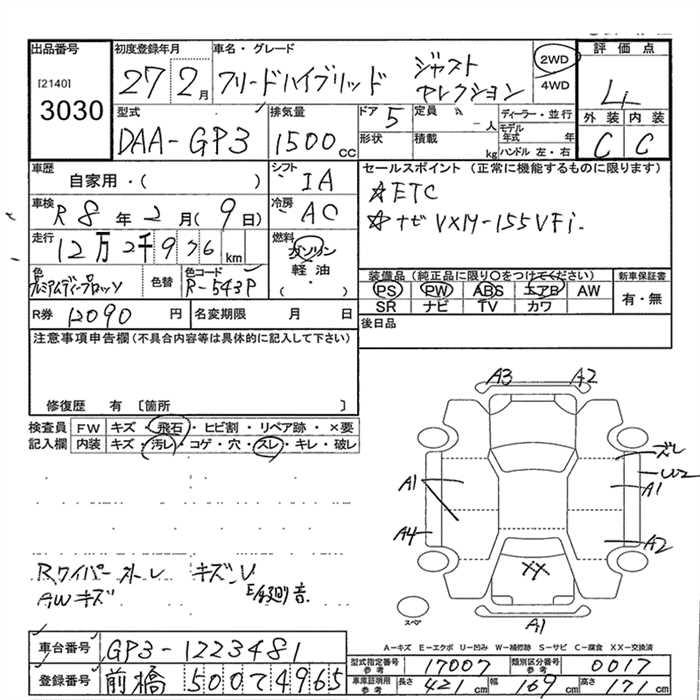 出品番号 初度登録年月 車名・グレード 評価点
[2140]
3030
27 2月 フリードハイブリッド ジャストセレクション 2WD 4WD 4
型式 排気量 ドア 5 定員 人 ディーラー・並行 外装 内装
DAA-GP3 1500cc 形状 積載 kg モデル年式 年 ハンドル 左・右 C C
車歴 シフト セールスポイント (正常に機能するものに限ります)
自家用・( ) IA ☆ETC
車検 R8年2月(9日) 冷房 AC ☆ナビ VXM-155VFi
走行 12万2千976km 燃料 ガソリン・軽油・( )
色 プレミアムディープロッソ 色替 色コード R-543P
装備品 (純正品に限り○をつけてください) 新車保証書
PS PW ABS エアB AW 有・無
SR ナビ TV カワ
R券 12090円 名変期限 月 日 後日品
注意事項申告欄 (不具合内容等は具体的に記入して下さい)
修復歴 有 〔箇所 〕
検査員 FW キズ・飛石・ヒビ割・リペア跡・×要
記入欄 内装 キズ・汚レ・コゲ・穴・スレ・キレ・破レ
A3 A2
ズレ
A1 A1
A4 A2
XX
スペア
A1
Rワイパー外レ キズ、U
AWキズ 異音
A-キズ E-エクボ U-凹み W-補修跡 S-サビ C-腐食 XX-交換済
車台番号 GP3-1223481
型式指定番号 参考 17007 類別区分番号 参考 0017
登録番号 前橋 500 7 4965
車庫証明用 参考 長さ 421cm 幅 169cm 高さ 171cm